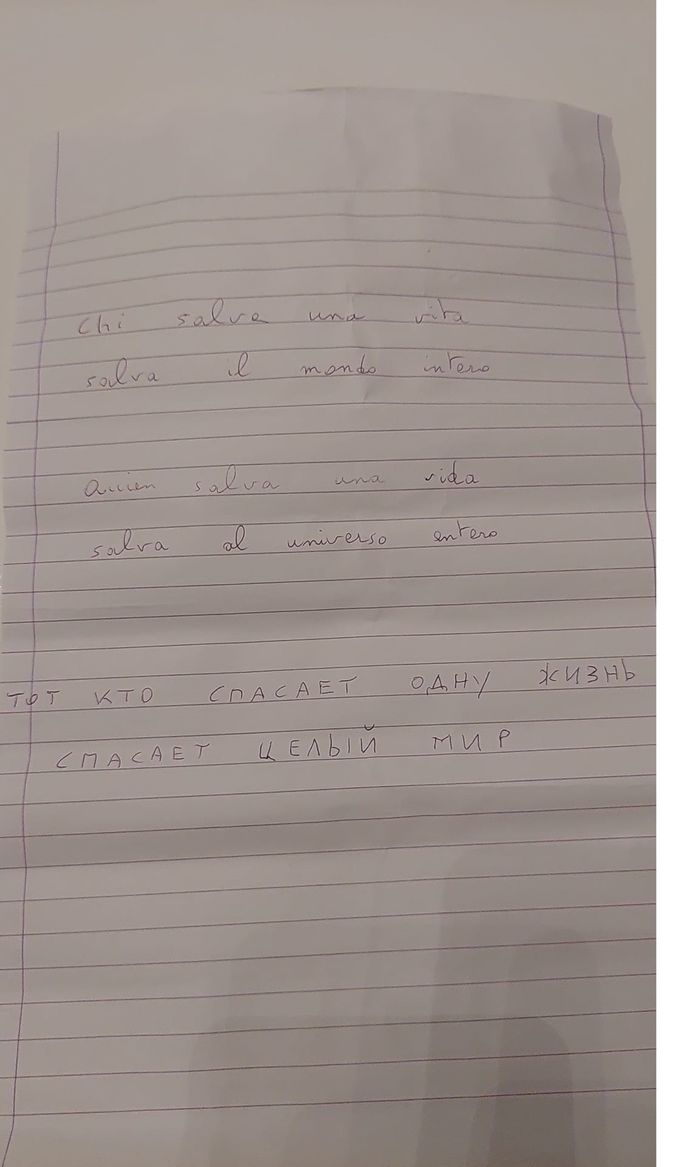 Chi salva una vita
salva il mondo intero
Quien salva una vida
salva al universo entero
ТОТ КТО СПАСАЕТ ОДНУ ЖИЗНЬ
СПАСАЕТ ЦЕЛЫЙ МИР